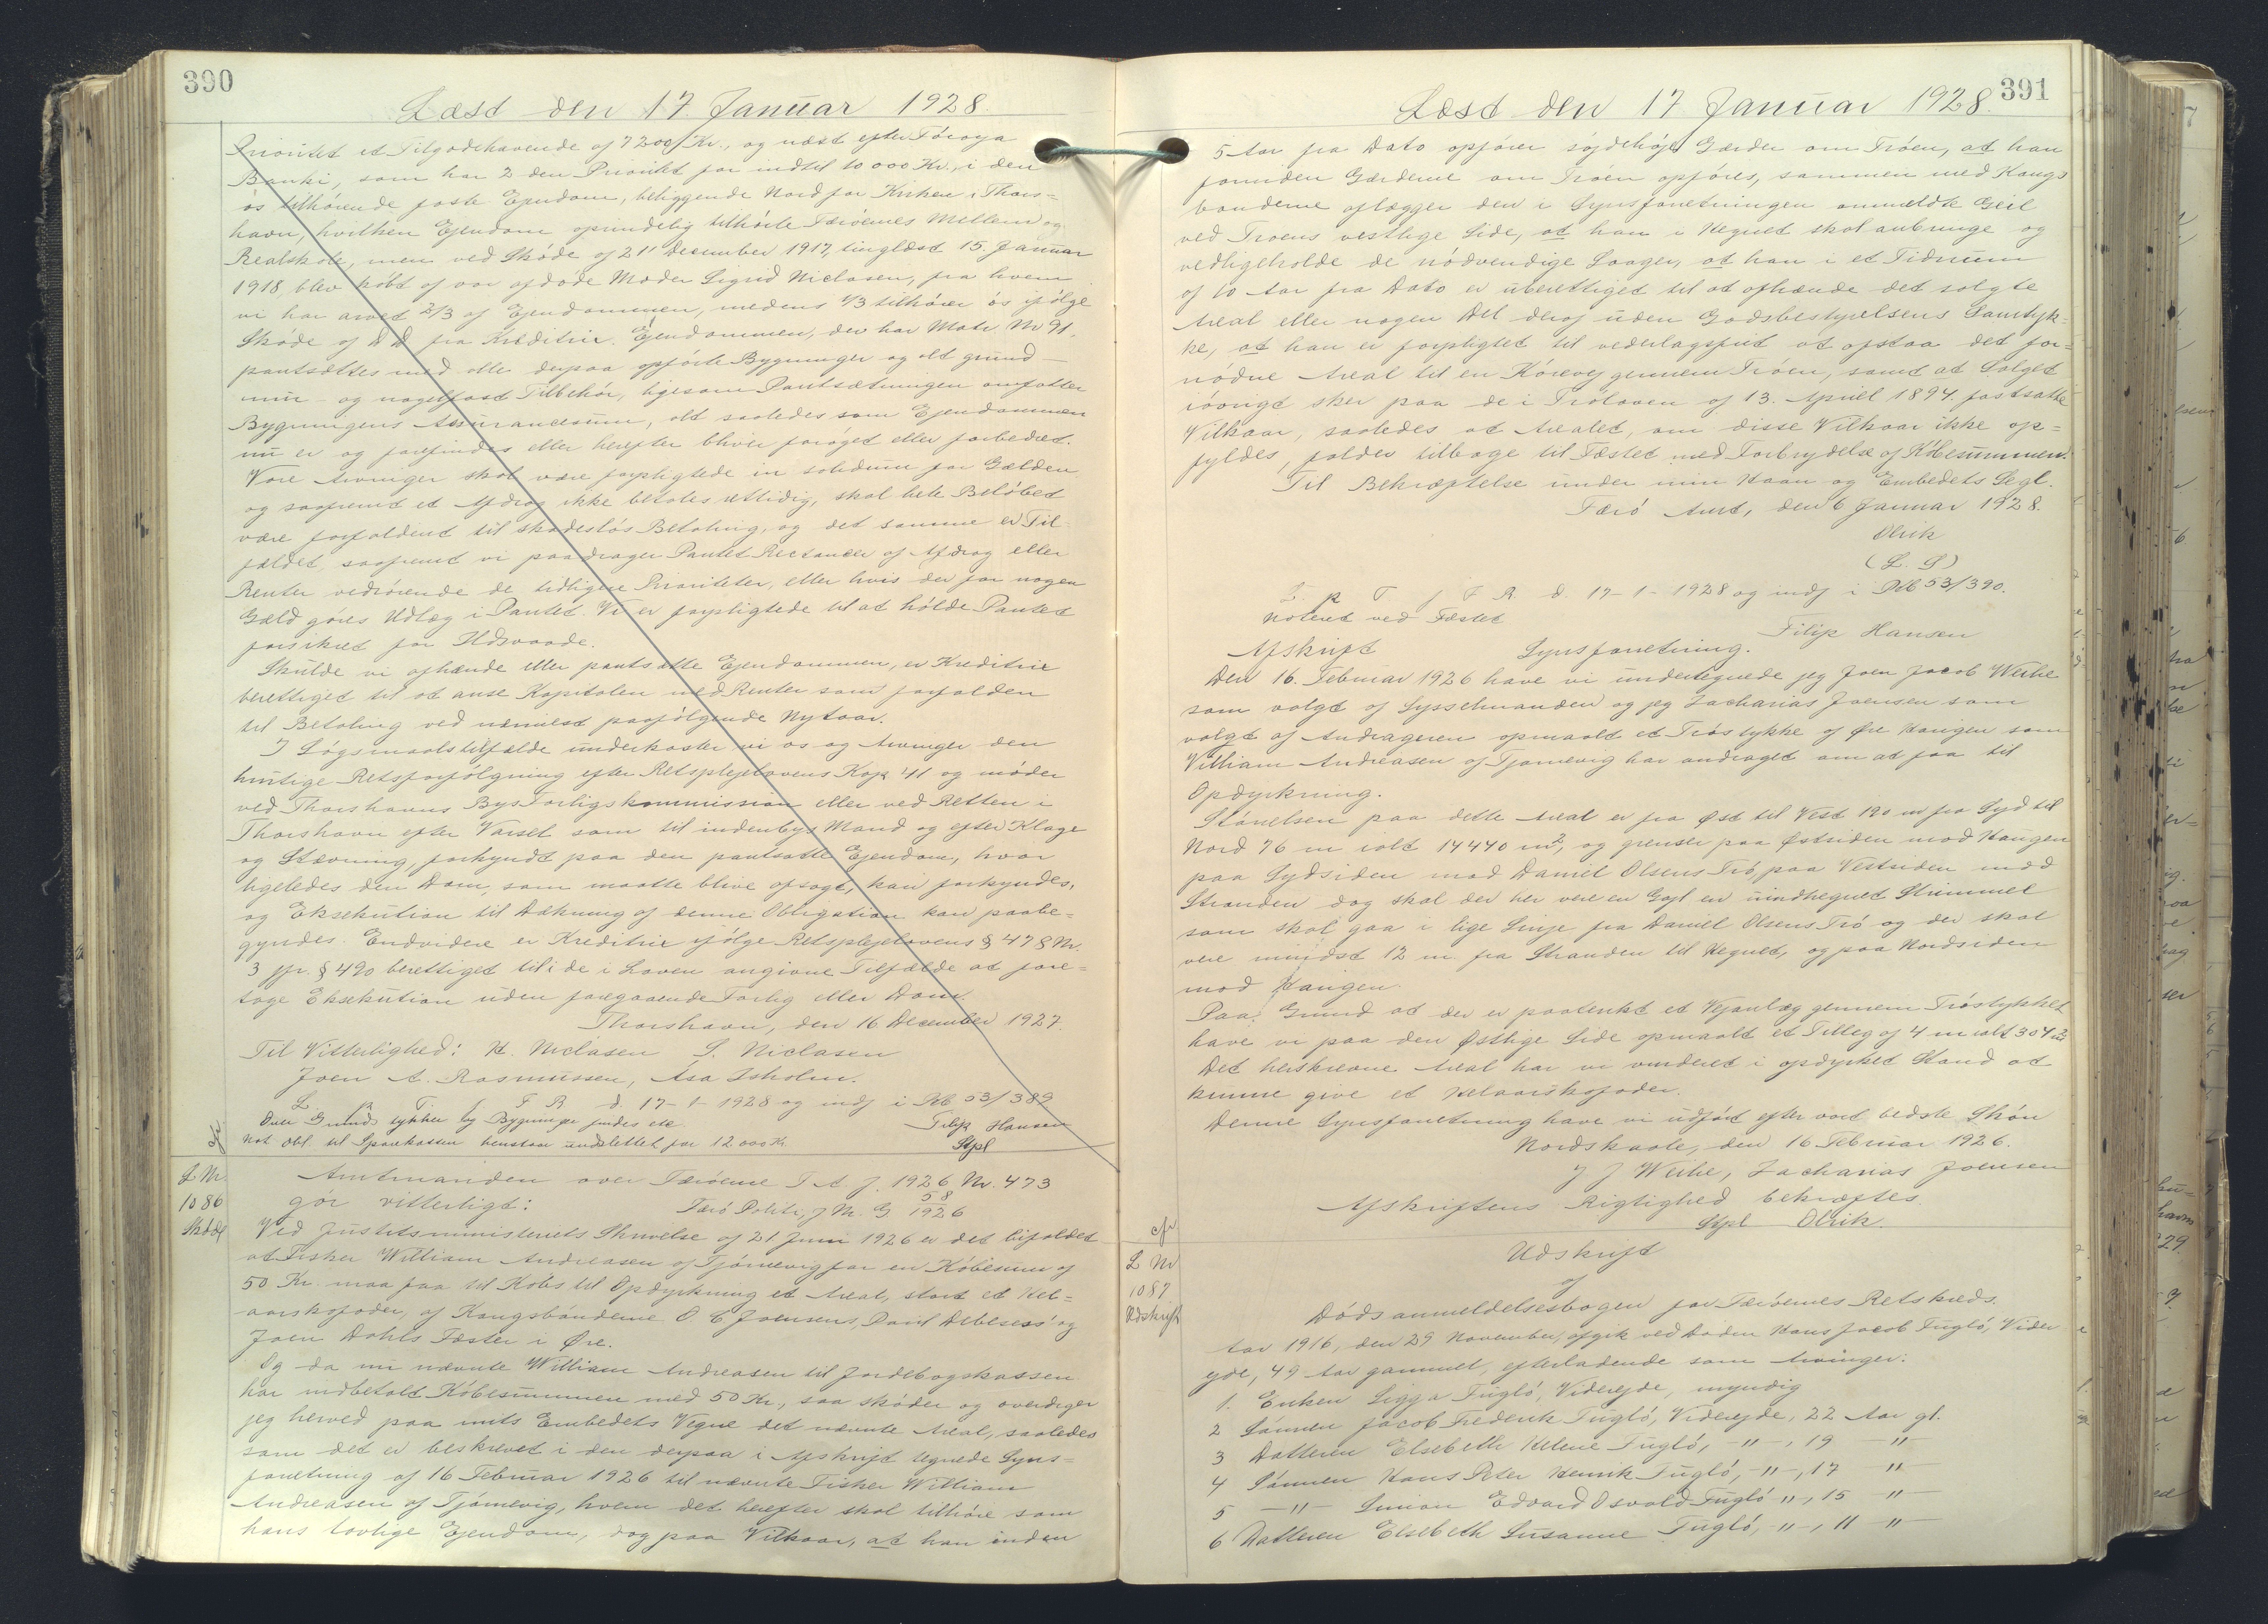 390
Læst den 17. Januar 1928.
Prioritet et Tilgodehavende af 7200 Kr., og næst efter Føroya
Banki, som har 2 den Prioritet for indtil 10 000 Kr., i den
os tilhørende faste Ejendom, beliggende Nord for Kirken i Thors=
havn, hvilken Ejendom oprindelig tilhørte Færøernes Mellem og
Realskole, men ved Skøde af 21' December 1917, tinglæst 15. Januar
1918, blev købt af vor afdøde Moder Sigrid Niclasen, fra hvem
vi har arvet 2/3 af Ejendommen, medens 1/3 tilhører os ifølge
Skøde af D D fra Kreditrix. Ejendommen, der har Matr. Nr 91,
pantsættes med alle derpaa opførte Bygninger og alt grund-
mur- og nagelfast Tilbehør, ligesom Pantsætningen omfatter
Bygningens Assurancesum, alt saaledes som Ejendommen
nu er og forefindes eller herefter bliver forøget eller forbedret.
Vore Arvinger skal være forpligtede in solidum for Gælden
og saafremt et Afdrag ikke betales rettidig, skal hele Beløbet
være forfaldent til skadesløs Betaling, og det samme er Til-
fældet, saafremt vi paadrager Pantet Restancer af Afdrag eller
Renter vedrørende de tidligere Prioriteter, eller hvis der for nogen
Gæld gøres Udlæg i Pantet. Vi er forpligtede til at holde Pantet
forsikret for Ildsvaade.
Skulde vi afhænde eller pantsætte Ejendommen, er Kreditrix
berettiget til at anse Kapitalen med Renter som forfalden
til Betaling ved nærmest paafølgende Nytaar.
I Søgsmaalstilfælde underkaster vi os og Arvinger den
hurtige Retsforfølgning efter Retsplejelovens Kap 41 og møder
ved Thorshavns Bys Forligskommission eller ved Retten i
Thorshavn efter Varsel som til indenbys Mand og efter Klage
og Stævning, forkyndt paa den pantsatte Ejendom, hvor
ligeledes den Dom, som maatte blive afsagt, kan forkyndes,
og Eksekution til Dækning af denne Obligation kan paabe=
gyndes. Endvidere er Kreditrix ifølge Retsplejelovens § 478 Nr.
3 jfr. § 490 berettiget til i de i Loven angivne Tilfælde at fore=
tage Eksekution uden foregaaende Forlig eller Dom.
Thorshavn, den 16 December 1927.
Til Vitterlighed: H. Niclasen S. Niclasen
Joen A. Rasmussen, Asa Isholm.
L. p T. f F R d. 17-1-1928 og indf i Pb 53/389
Over Grunds tykker og Bygninger findes etc. Filip Hansen
Not Obl. til Sparekassen henstaar uudslettet for 12 000 Kr Stpl
cfr
L Nr.
1086
Skøde
Amtmanden over Færøerne F A J. 1926 Nr. 473
gør vitterligt: Færø Politi, J M. G. 58/1926
Ved Justitsministeriets Skrivelse af 21 Juni 1926 er det bifaldet
at Fisker William Andreasen af Tjørnevig for en Købesum af
50 Kr. maa faa til Købs til Opdyrkning et Areal, stort et Hel=
aarskofoder, af Kongsbønderne O C Joensens, David Debesess' og
Joen Dahls Fæster i Øre.
Og da nu nævnte William Andreasen til Jordebogskassen
har indbetalt Købesummen med 50 Kr., saa skøder og overdrager
jeg herved paa mits Embedets Vegne det nævnte Areal, saaledes
som det er beskrevet i den derpaa i Afskrift tegnede Syns=
forretning af 16 Februar 1926 til nævnte Fisker William
Andreasen af Tjørnevig, hvem det herefter skal tilhøre som
hans lovlige Ejendom, dog paa Vilkaar, at han inden
391
Læst den 17 Januar 1928.
5 Aar fra Dato opfører søjdehøje Gærder om Trøen, at han
forinden Gærderne om Trøen opføres, sammen med Kongs
bønderne aflægger den i Synsforretningen anmeldte Geil
ved Troens vestlige Side, at han i Hegnet skal anbringe og
vedligeholde de nødvendige Laager, at han i et Tidsrum
af 10 Aar fra Dato er uberettiget til at afhænde det solgte
Areal eller nogen Del deraf uden Godsbestyrelsens Samtyk=
ke, at han er forpligtet til vederlagsfrit at afstaa det for=
nødne Areal til en Kørevej gennem Trøen, samt at Salget
iøvrigt sker paa de i Trøloven af 13. April 1894 fastsatte
Vilkaar, saaledes at Arealet, om disse Vilkaar ikke op=
fyldes, falder tilbage til Fæstet med Forbrydelse af Købesummen.
Til Bekræftelse under min Haan og Embedets Segl.
Færø Amt, den 6 Januar 1928.
Olrik
(L. S)
L. p T. f F R. d. 17-1-1928 og indf i Pb 53/390.
Noteret ved Fæstet
Filip Hansen
Afskrift Synsforretning.
Den 16. Februar 1926 have vi undertegnede jeg Joen Jacob Weihe
som valgt af Sysselmanden og jeg Zacharias Joensen som
valgt af Andrageren opmaalt et Trøstykke af Øre Haugen som
William Andreasen af Tjørnevig har andraget om at faa til
Opdyrkning.
Størrelsen paa dette Areal er fra Øst til Vest 190 m fra Syd til
Nord 76 m ialt 14440 m², og grenser paa Østsiden mod Haugen
paa Sydsiden mod Daniel Olsens Trø, paa Vestsiden mod
Stranden dog skal der her vere en Gejl en uindhegnet Strimmel
som skal gaa i lige Linje fra Daniel Olsens Trø og der skal
vere mindst 12 m. fra Stranden til Hegnet, og paa Nordsiden
mod Haugen.
Paa Grund at der er paatenkt et Vejanlæg gennem Trøstykket
have vi paa den Østlige Side opmaalt et Tilleg af 4 m ialt 304 m²
Det herskrevne Areal har vi vurderet i opdyrket Stand at
kunne give et Helaarskofoder.
Denne Synsforretning have vi udført efter vort bedste Skøn
Nordskaale, den 16 Februar 1926.
J J Weihe, Zacharias Joensen
Afskriftens Rigtighed bekræftes.
Stpl Olrik.
cfr
L Nr
1087
Udskrift
Udskrift
af
Dødsanmeldelsesbogen for Færøernes Retskreds.
Aar 1916, den 29 November, afgik ved Døden Hans Jacob Fugló, Vider
ejde, 49 Aar gammel, efterladende som Arvinger:
1. Enken Sigga Fugló, Viderejde, myndig
2 Sønnen Jacob Frederik Fugló, Viderejde, 22 Aar gl.
3 Datteren Elsebeth Helene Fugló, -"-, 19 -"-
4 Sønnen Hans Peter Henrik Fugló, -"-, 17 -"-
5 -"- Simion Edvard Osvald Fugló -"-, 15 -"-
6 Datteren Elsebeth Susanne Fugló, -"-, 11 -"-